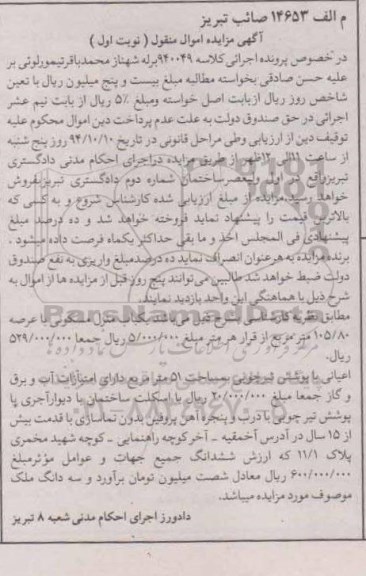 م الف ۱۴۶۵۳ صائب تبریز
آگهی مزایده اموال منقول ( نوبت اول )
در خصوص پرونده اجرائی کلاسه ۹۴۰۰۴۹ برله شهناز محمدباقرتیمورلوئی بر
علیه حسن صادقی بخواسته مطالبه مبلغ بیست و پنج میلیون ریال با تعین
شاخص روز ریال ازبابت اصل خواسته ومبلغ ۵٪ ریال از بابت نیم عشر
اجرائی در حق صندوق دولت به علت عدم پرداخت دین اموال محکوم علیه
توقیف دین از ارزیابی وطی مراحل قانونی در تاریخ ۹۴/۱۰/۱۰ روز پنج شنبه
از ساعت ۱۱الی ۱۲ظهر از طریق مزایده دراجرای احکام مدنی دادگستری
تبریزواقع ولیعصر ساختمان شماره دوم دادگستری تبریزبفروش
خواهد رسید.مزایده از مبلغ ارزیابی شده کارشناس شروع و به کسی که
بالاترین قیمت را پیشنهاد نماید فروخته خواهد شد و ده درصد مبلغ
پیشنهادی فی المجلس اخذ و ما بقی حداکثر یکماه فرصت داده میشود .
برنده مزایده به هرعنوان انصراف نماید ده درصدمبلغ واریزی به نفع صندوق
دولت ضبط خواهد شد طالبین می توانند پنج روز قبل از مزایده ها از اموال به
شرح ذیل با هماهنگی این واحد بازدید نمایند.
مطابق نظریه کارشناسی بشرح ذیل می باشد یکباب منزل مسکونی با عرصه
۱۰۵/۸۰ متر مربع از قرار هر متر مبلغ ۵/۰۰۰/۰۰۰ ریال جمعا ۵۲۹/۰۰۰/۰۰۰
ریال.
اعیانی با پوشش تیرچوبی به مساحت ۵۱ متر مربع دارای امتیازات آب و برق
و گاز جمعا مبلغ ۲۰/۰۰۰/۰۰۰ ریال با اسکلت ساختمان با دیوارآجری پا
پوشش تیر چوبی با درب و پنجره آهن پروفین بدون نماسازی با قدمت بیش
از ۱۵ سال در آدرس آخمقیه ـ آخر کوچه راهنمایی ـ کوچه شهید مخمری
پلاک ۱۱/۱ که ارزش ششدانگ جمیع جهات و عوامل مؤثرمبلغ
۶۰۰/۰۰۰/۰۰۰ ریال معادل شصت میلیون تومان برآورد و سه دانگ ملک
موصوف مورد مزایده میباشد.
دادورز اجرای احکام مدنی شعبه ۸ تبریز